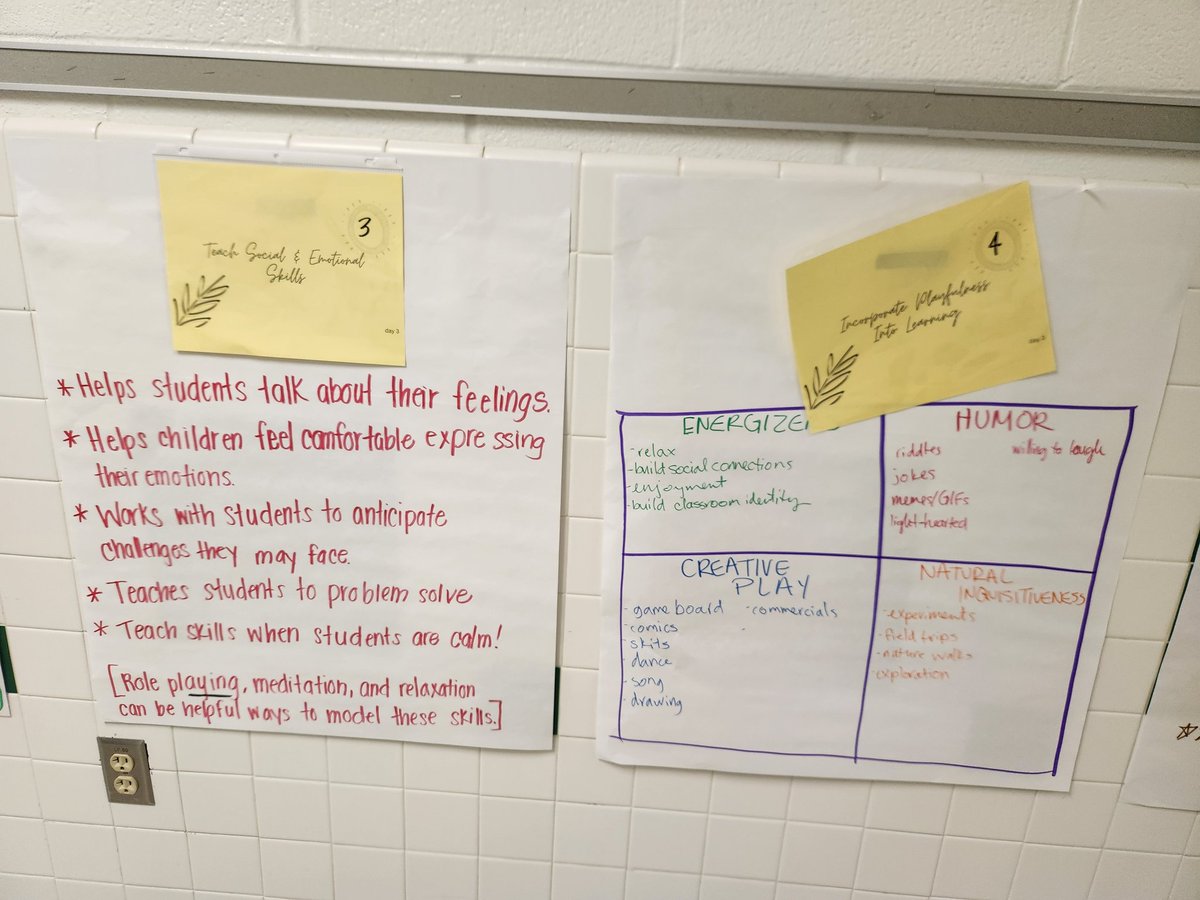 3
Teach Social & Emotional
Skills
day 3
* Helps students talk about their feelings.
* Helps children feel comfortable expressing
their emotions.
* Works with students to anticipate
challenges they may face.
* Teaches students to problem solve
* Teach skills when students are calm!
[Role playing, meditation, and relaxation
can be helpful ways to model these skills.]
4
Incorporate Playfulness
Into Learning
ENERGIZE
-relax
-build social connections
-enjoyment
-build classroom identity
HUMOR
riddles willing to laugh
jokes
memes/GIFs
light-hearted
CREATIVE
PLAY
-game board -commercials
-comics
-skits
-dance
-song
-drawing
NATURAL
INQUISITIVENESS
-experiments
-field trips
-nature walks
-exploration